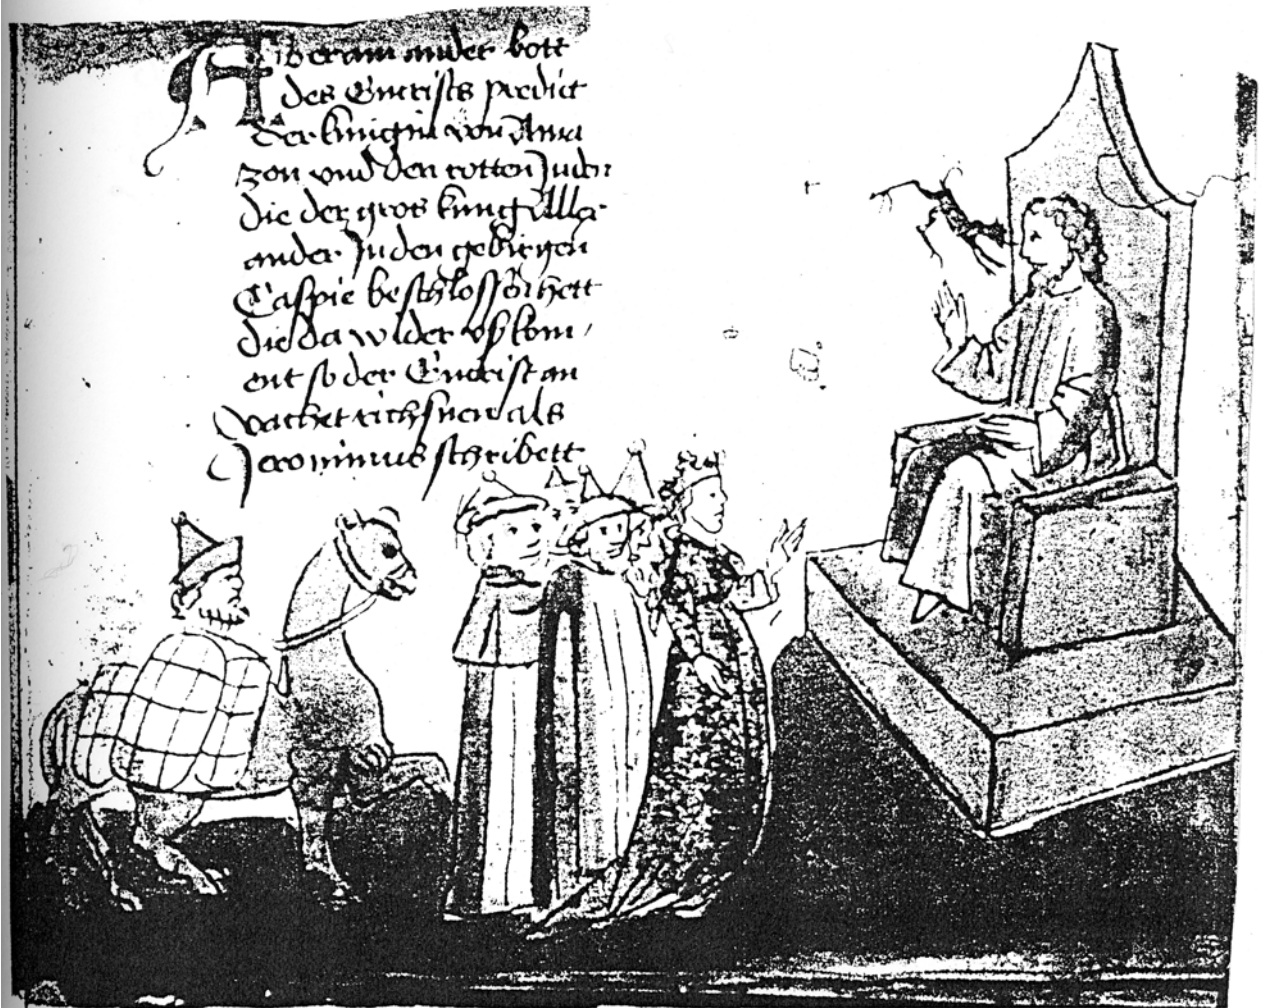 Aber ain ander bott
des Entcrists prediet
der kunigin von Ama
zon vnd den rotten Juden
die der gros kung Allex
ander Jn den gebirgen
Caspie beschlossen hett
die da wider vskom
ent so der Entcrist an
vachet richsnen als
Jeronimus schribett